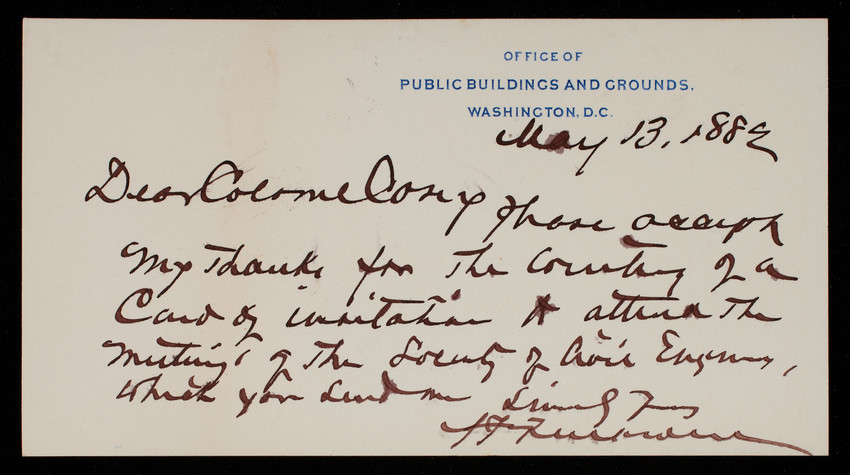 OFFICE OF
PUBLIC BUILDINGS AND GROUNDS,
WASHINGTON, D.C.
May 13, 1882
Dear Colonel Casey Please accept
My thanks for the Courtesy of a
Card of invitation to attend the
Meeting of the Society of Civil Engineers,
which you send me Sincerely Yours